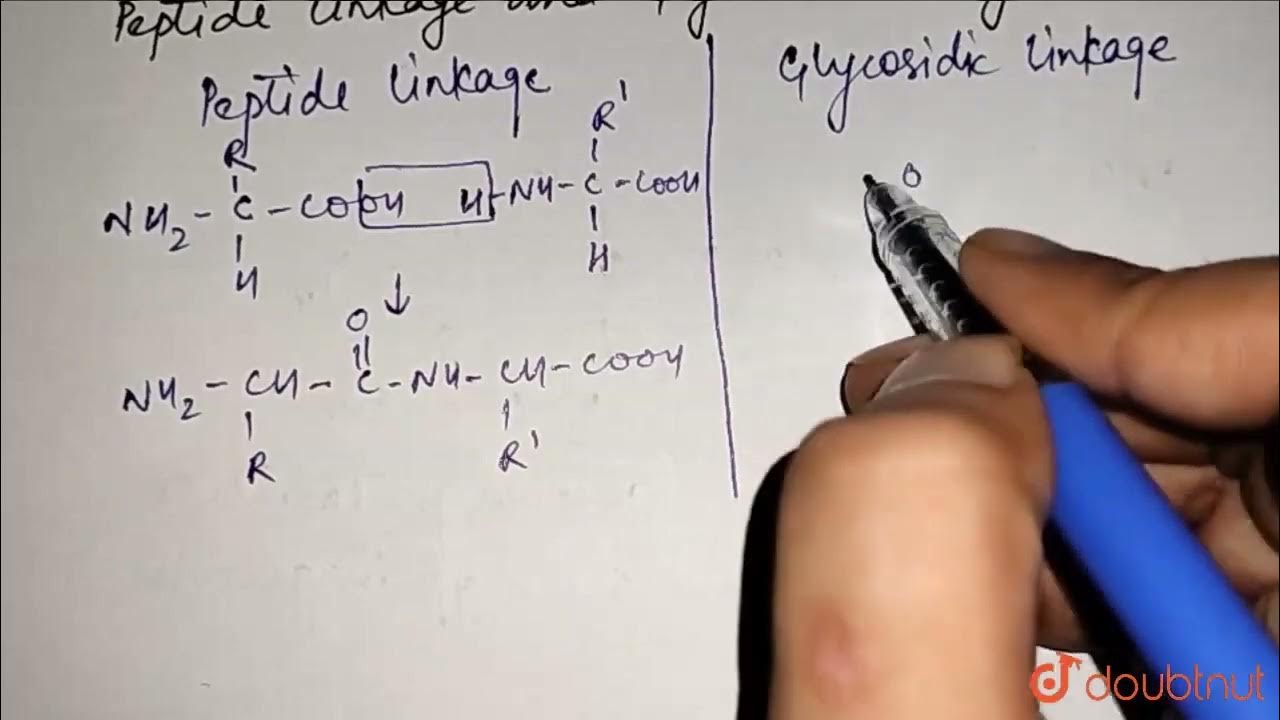 Peptide linkage and
Peptide linkage
R
NH2 - C - COOH H - NH - C - COOH
H
R'
H
↓
O
NH2 - CH - C - NH - CH - COOH
R
R'
Glycosidic linkage
O
doubtnut